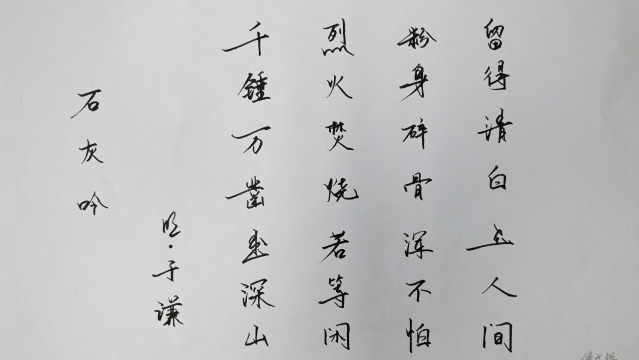 石灰吟
明·于谦
千锤万凿出深山
烈火焚烧若等闲
粉身碎骨浑不怕
留得清白在人间